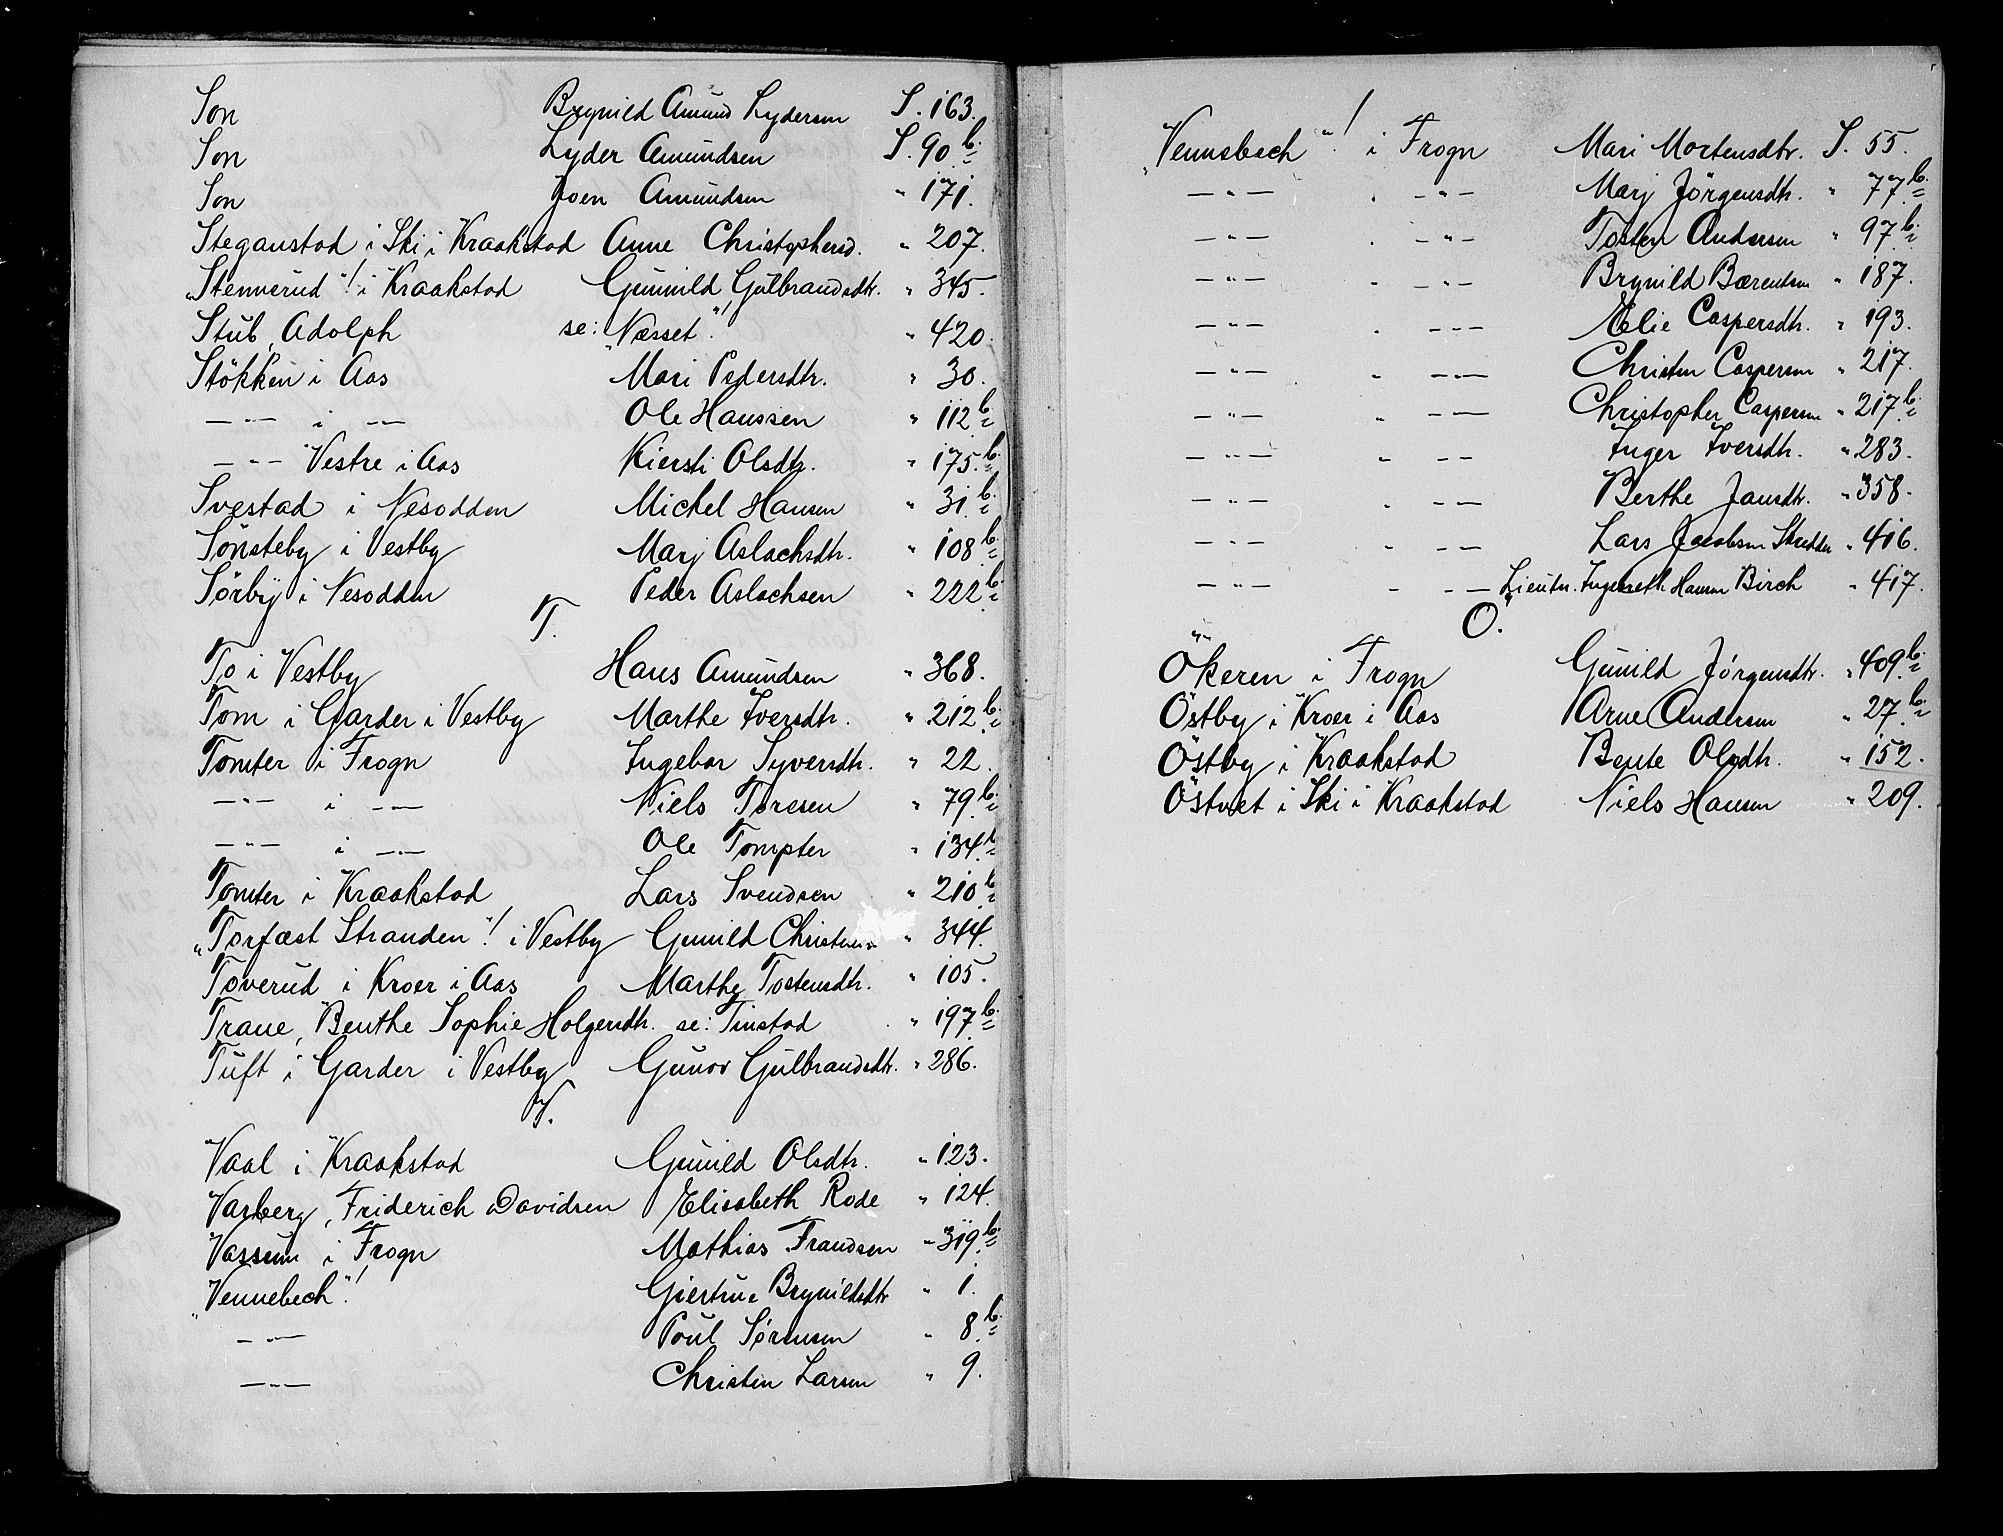 Son Brynild Amund Lydersen S. 163.
Son Lyder Amundsen S. 90 b.
Son Joen Amundsen " 171.
Steganstad i Ski i Kraakstad Anne Christophersd. " 207.
"Stennerud"! i Kraakstad Gunnild Gulbrandsdtr. " 345.
Stub, Adolph se: "Næsset"! " 420.
Stökken i Aas Mari Pedersdtr. " 30.
—"— i —"— Ole Hanssen " 112 b.
—"— Vestre i Aas Kiersti Olsdtr. " 175. b.
Svestad i Nesodden Michel Hansen " 31. b.
Sönsteby i Vestby Marj Aslachsdtr. " 108 b.
Sörby i Nesodden Peder Aslachsen " 222 b.
T.
To i Vestby Hans Amundsen " 368.
Tom i Garder i Vestby Marthe Iversdtr. " 212 b.
Tomter i Frogn Ingebor Syversdtr. " 22.
—"— i —"— Niels Toresen " 79 b.
—"— i —"— Ole Tompter " 134. b.
Tomter i Kraakstad Lars Svendsen " 210. b.
"Torfæst Stranden"! i Vestby Gunild " 344.
Toverud i Kroer i Aas Marthe Tostensdtr. " 105.
Trane, Benthe Sophie Holgersdtr. se: Tinstad " 197. b.
Tuft i Garder i Vestby Gunor Gulbrandsdtr. " 286.
V.
Vaal i Kraakstad Gunild Olsdtr. " 123.
Varberg, Friderich Davidsen Elisabeth Rode " 124.
Vassum i Frogn Mathias Frandsen " 319. b.
"Vennebech"! Giertrue Brynildsdtr " 1.
—"— Poul Sørensen " 8. b.
—"— Christen Larsen " 9.
"Vennebech"! i Frogn Mari Mortensdtr. S. 55.
—"— " —"— Marj Jörgensdtr. " 77 b.
—"— " —"— Tosten Andersen " 97. b.
—"— " —"— Brynild Bærentsen " 187.
—"— " —"— Elie Caspersdtr. " 193.
—"— " —"— Christen Caspersen " 217.
—"— " —"— Christopher Caspersen " 217. b.
—"— " —"— Inger Iversdtr. " 283.
—"— " —"— Berthe Jansdtr. " 358.
—"— " —"— Lars Jacobsen Skredder " 416.
—"— " —"— Lieutn. Hansen Birch " 417.
Ö.
Ökeren i Frogn Gunild Jörgensdtr. " 409. b.
Östby i Kroer i Aas Arne Andersen " 27. b.
Östby i Kraakstad Bente Olsdtr. " 152.
Östvet i Ski i Kraakstad Niels Hansen " 209.